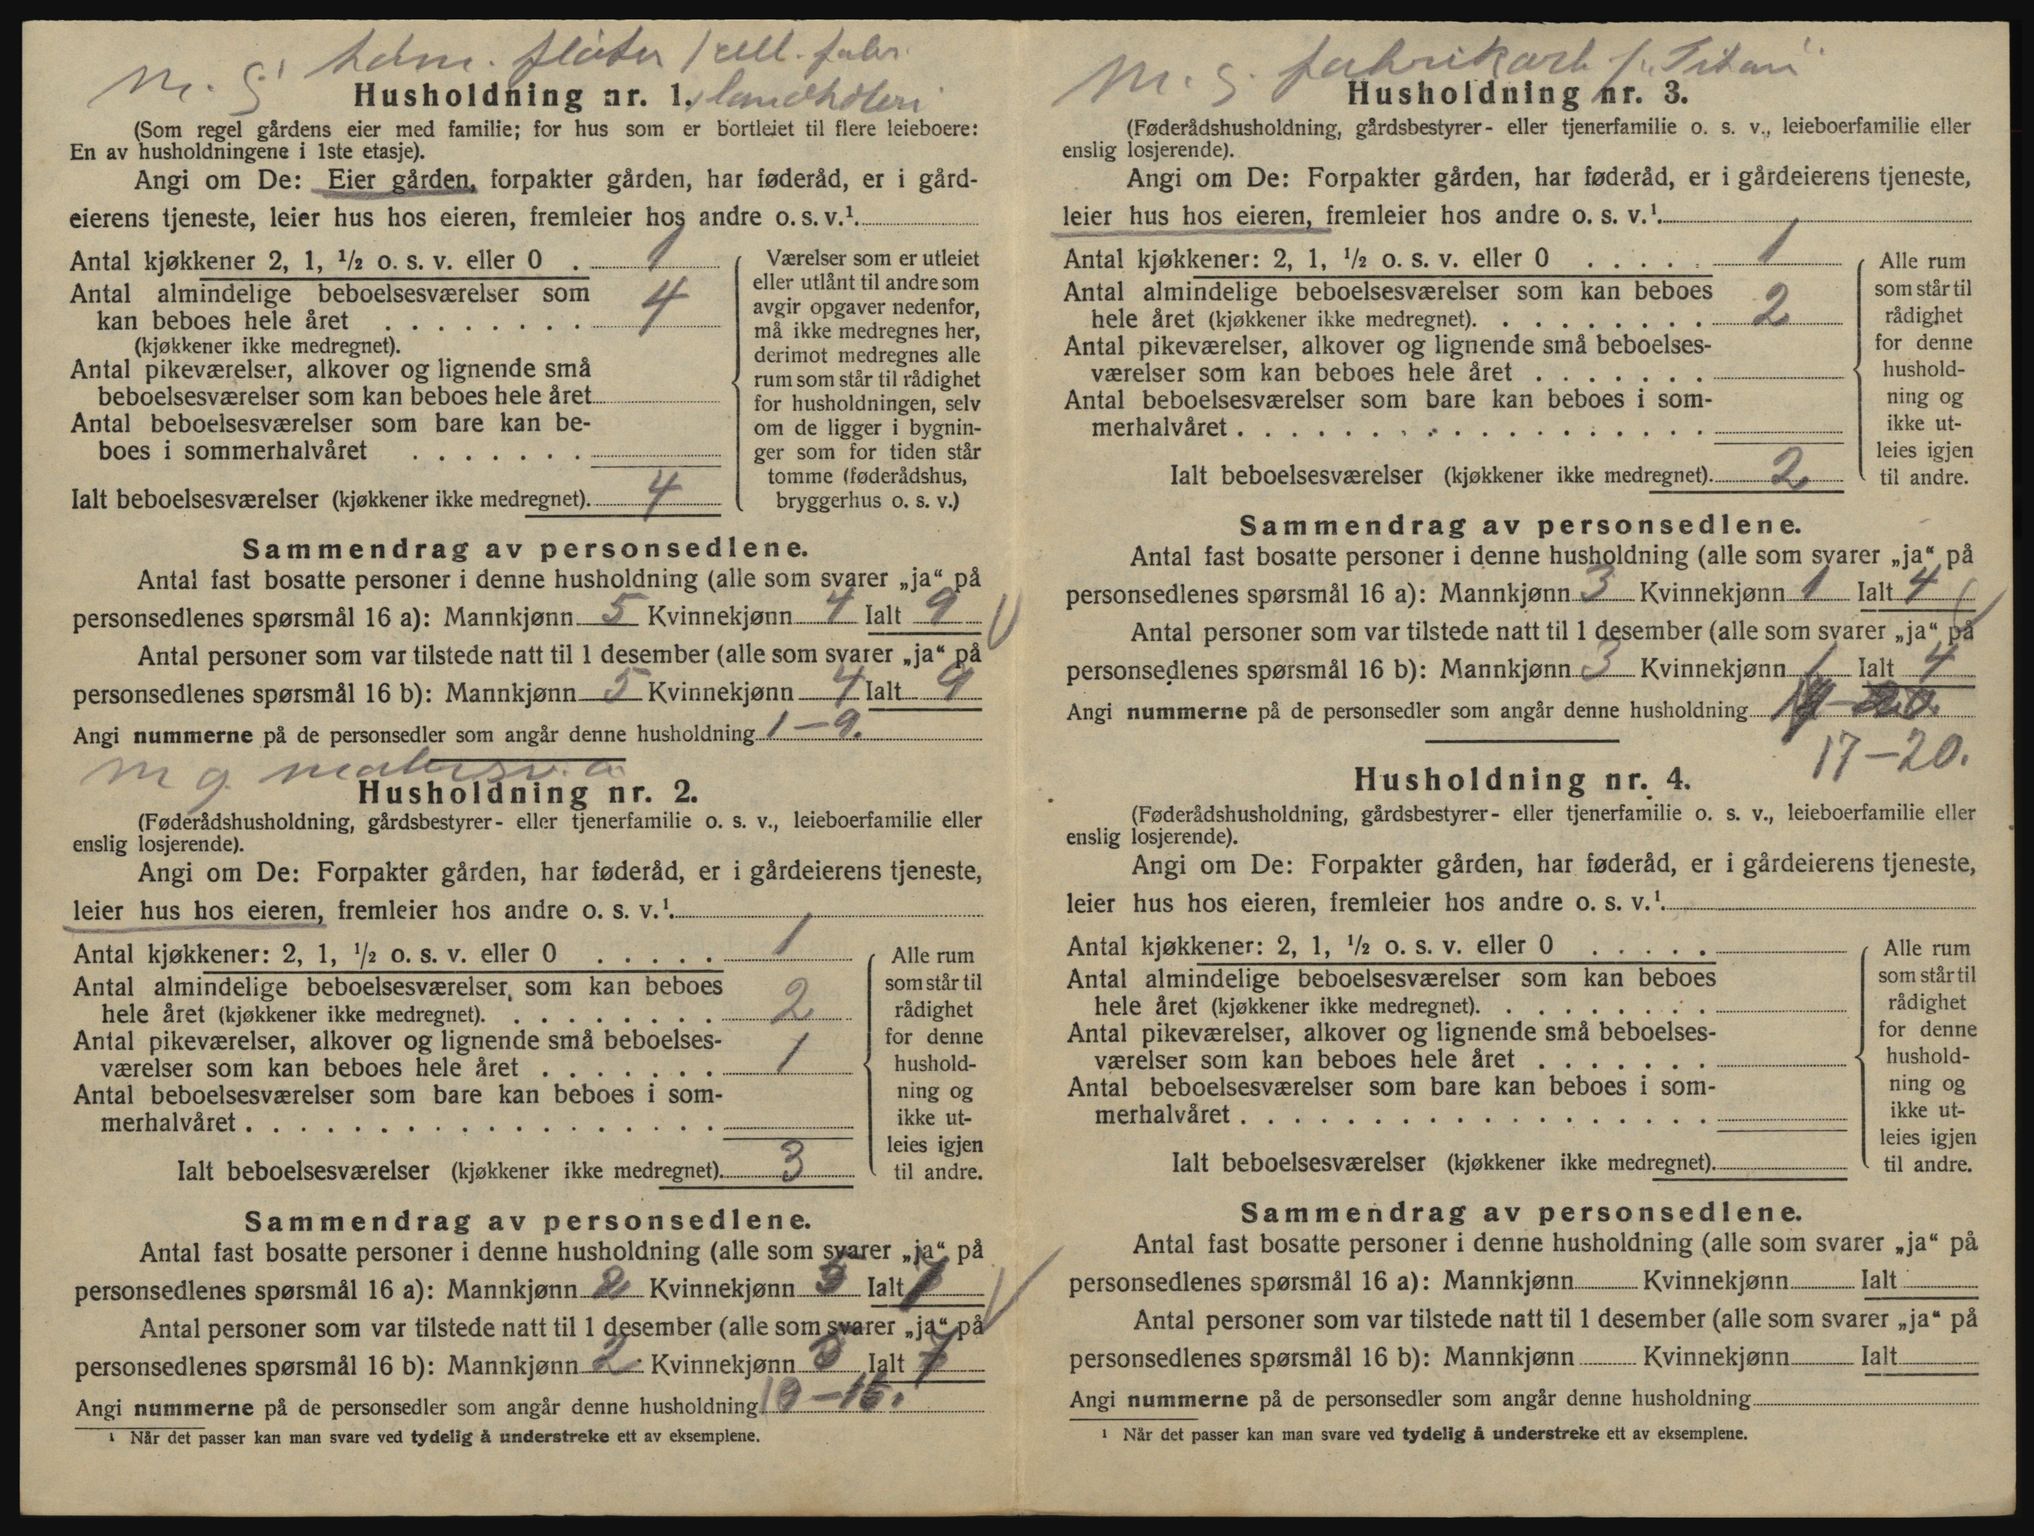 M. G. tøm. fløter / cell. fabr.
Husholdning nr. 1. landhdleri
(Som regel gårdens eier med familie; for hus som er bortleiet til flere leieboere:
En av husholdningene i 1ste etasje).
Angi om De: Eier gården, forpakter gården, har føderåd, er i gård-
eierens tjeneste, leier hus hos eieren, fremleier hos andre o. s. v.¹.
Antal kjøkkener 2, 1, ½ o. s. v. eller 0 . 1
Antal almindelige beboelsesværelser som
kan beboes hele året . . . . . . . . 4
(kjøkkener ikke medregnet).
Antal pikeværelser, alkover og lignende små
beboelsesværelser som kan beboes hele året
Antal beboelsesværelser som bare kan be-
boes i sommerhalvåret . . . . . . .
Ialt beboelsesværelser (kjøkkener ikke medregnet). 4
Værelser som er utleiet
eller utlånt til andre som
avgir opgaver nedenfor,
må ikke medregnes her,
derimot medregnes alle
rum som står til rådighet
for husholdningen, selv
om de ligger i bygnin-
ger som for tiden står
tomme (føderådshus,
bryggerhus o. s. v.)
Sammendrag av personsedlene.
Antal fast bosatte personer i denne husholdning (alle som svarer „ja“ på
personsedlenes spørsmål 16 a): Mannkjønn 5 Kvinnekjønn 4 Ialt 9
Antal personer som var tilstede natt til 1 desember (alle som svarer „ja“ på
personsedlenes spørsmål 16 b): Mannkjønn 5 Kvinnekjønn 4 Ialt 9
Angi nummerne på de personsedler som angår denne husholdning 1-9.
M g.
Husholdning nr. 2.
(Føderådshusholdning, gårdsbestyrer- eller tjenerfamilie o. s. v., leieboerfamilie eller
enslig losjerende).
Angi om De: Forpakter gården, har føderåd, er i gårdeierens tjeneste,
leier hus hos eieren, fremleier hos andre o. s. v.¹.
Antal kjøkkener: 2, 1, ½ o. s. v. eller 0 . . . . . 1
Antal almindelige beboelsesværelser som kan beboes
hele året (kjøkkener ikke medregnet). . . . . . . . . 2
Antal pikeværelser, alkover og lignende små beboelses-
værelser som kan beboes hele året . . . . . . . 1
Antal beboelsesværelser som bare kan beboes i som-
merhalvåret . . . . . . . . . . . . . . . . . .
Ialt beboelsesværelser (kjøkkener ikke medregnet). 3
Alle rum
som står til
rådighet
for denne
hushold-
ning og
ikke ut-
leies igjen
til andre.
Sammendrag av personsedlene.
Antal fast bosatte personer i denne husholdning (alle som svarer „ja“ på
personsedlenes spørsmål 16 a): Mannkjønn 2 Kvinnekjønn 5 Ialt 7
Antal personer som var tilstede natt til 1 desember (alle som svarer „ja“ på
personsedlenes spørsmål 16 b): Mannkjønn 2 Kvinnekjønn 5 Ialt 7
Angi nummerne på de personsedler som angår denne husholdning 10-16.
¹ Når det passer kan man svare ved tydelig å understreke ett av eksemplene.
M. G. fabrikarb f. „Titan“
Husholdning nr. 3.
(Føderådshusholdning, gårdsbestyrer- eller tjenerfamilie o. s. v., leieboerfamilie eller
enslig losjerende).
Angi om De: Forpakter gården, har føderåd, er i gårdeierens tjeneste,
leier hus hos eieren, fremleier hos andre o. s. v.¹.
Antal kjøkkener: 2, 1, ½ o. s. v. eller 0 . . . . . 1
Antal almindelige beboelsesværelser som kan beboes
hele året (kjøkkener ikke medregnet). . . . . . . . . 2
Antal pikeværelser, alkover og lignende små beboelses-
værelser som kan beboes hele året . . . . . . .
Antal beboelsesværelser som bare kan beboes i som-
merhalvåret . . . . . . . . . . . . . . . . . .
Ialt beboelsesværelser (kjøkkener ikke medregnet). 2
Alle rum
som står til
rådighet
for denne
hushold-
ning og
ikke ut-
leies igjen
til andre.
Sammendrag av personsedlene.
Antal fast bosatte personer i denne husholdning (alle som svarer „ja“ på
personsedlenes spørsmål 16 a): Mannkjønn 3 Kvinnekjønn 1 Ialt 4
Antal personer som var tilstede natt til 1 desember (alle som svarer „ja“ på
personsedlenes spørsmål 16 b): Mannkjønn 3 Kvinnekjønn 1 Ialt 4
Angi nummerne på de personsedler som angår denne husholdning
17-20.
Husholdning nr. 4.
(Føderådshusholdning, gårdsbestyrer- eller tjenerfamilie o. s. v., leieboerfamilie eller
enslig losjerende).
Angi om De: Forpakter gården, har føderåd, er i gårdeierens tjeneste,
leier hus hos eieren, fremleier hos andre o. s. v.¹.
Antal kjøkkener: 2, 1, ½ o. s. v. eller 0 . . . . .
Antal almindelige beboelsesværelser som kan beboes
hele året (kjøkkener ikke medregnet). . . . . . . . .
Antal pikeværelser, alkover og lignende små beboelses-
værelser som kan beboes hele året . . . . . . .
Antal beboelsesværelser som bare kan beboes i som-
merhalvåret . . . . . . . . . . . . . . . . . .
Ialt beboelsesværelser (kjøkkener ikke medregnet).
Alle rum
som står til
rådighet
for denne
hushold-
ning og
ikke ut-
leies igjen
til andre.
Sammendrag av personsedlene.
Antal fast bosatte personer i denne husholdning (alle som svarer „ja“ på
personsedlenes spørsmål 16 a): Mannkjønn Kvinnekjønn Ialt
Antal personer som var tilstede natt til 1 desember (alle som svarer „ja“ på
personsedlenes spørsmål 16 b): Mannkjønn Kvinnekjønn Ialt
Angi nummerne på de personsedler som angår denne husholdning
¹ Når det passer kan man svare ved tydelig å understreke ett av eksemplene.